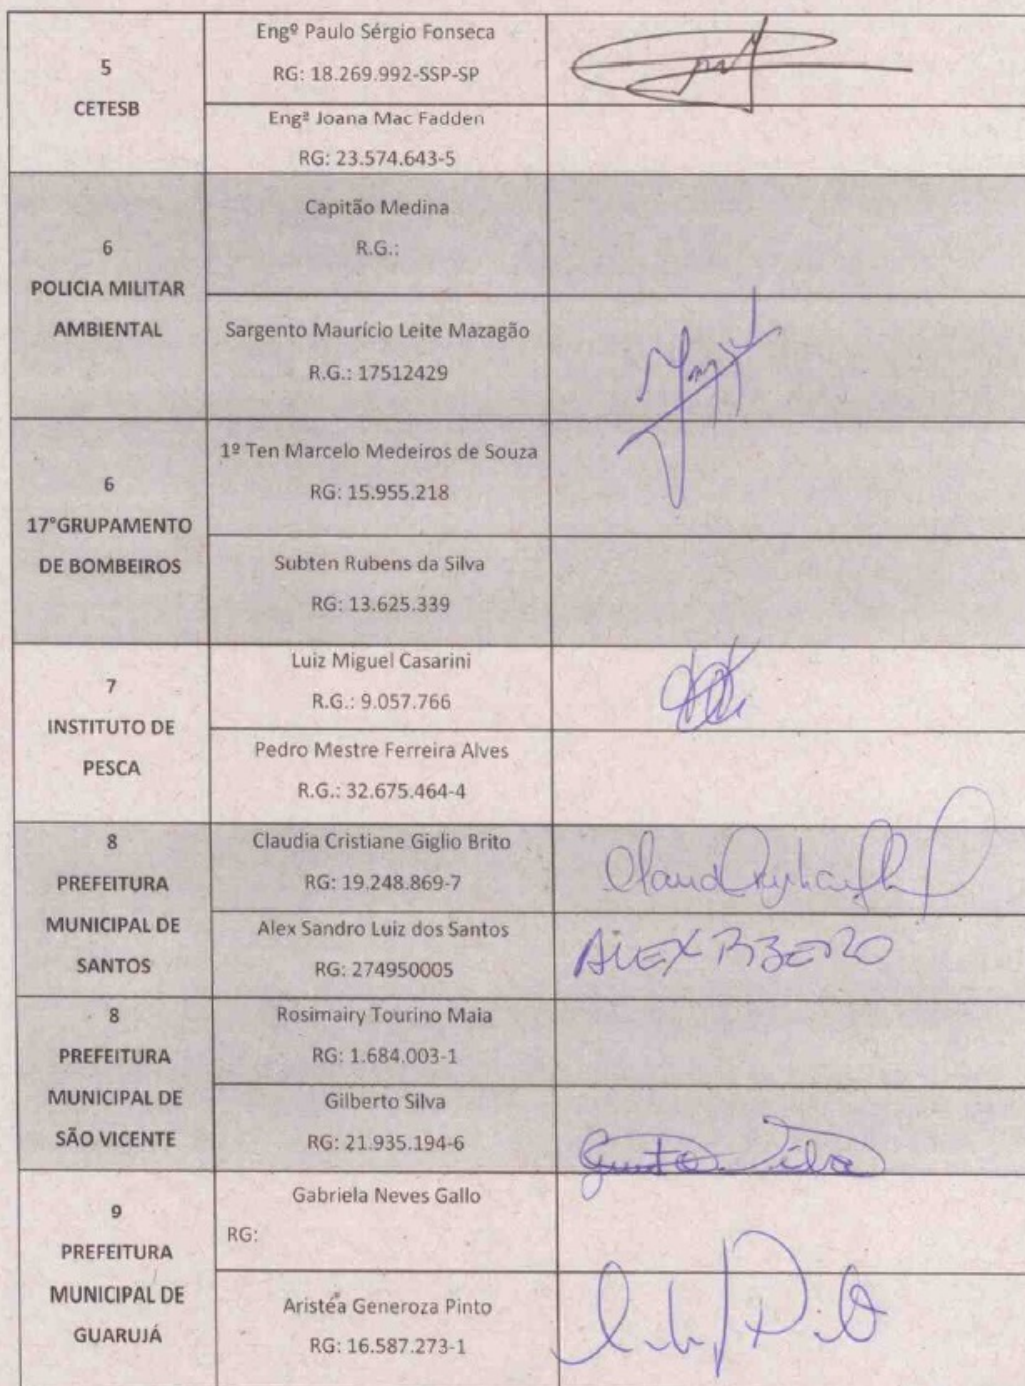 5
CETESB
Engº Paulo Sérgio Fonseca
RG: 18.269.992-SSP-SP
Engª Joana Mac Fadden
RG: 23.574.643-5
6
POLICIA MILITAR
AMBIENTAL
Capitão Medina
R.G.:
Sargento Maurício Leite Mazagão
R.G.: 17512429
6
17°GRUPAMENTO
DE BOMBEIROS
1º Ten Marcelo Medeiros de Souza
RG: 15.955.218
Subten Rubens da Silva
RG: 13.625.339
7
INSTITUTO DE
PESCA
Luiz Miguel Casarini
R.G.: 9.057.766
Pedro Mestre Ferreira Alves
R.G.: 32.675.464-4
8
PREFEITURA
MUNICIPAL DE
SANTOS
Claudia Cristiane Giglio Brito
RG: 19.248.869-7
Alex Sandro Luiz dos Santos
RG: 274950005
ALEX
8
PREFEITURA
MUNICIPAL DE
SÃO VICENTE
Rosimairy Tourino Maia
RG: 1.684.003-1
Gilberto Silva
RG: 21.935.194-6
Silva
9
PREFEITURA
MUNICIPAL DE
GUARUJÁ
Gabriela Neves Gallo
RG:
Aristéa Generoza Pinto
RG: 16.587.273-1